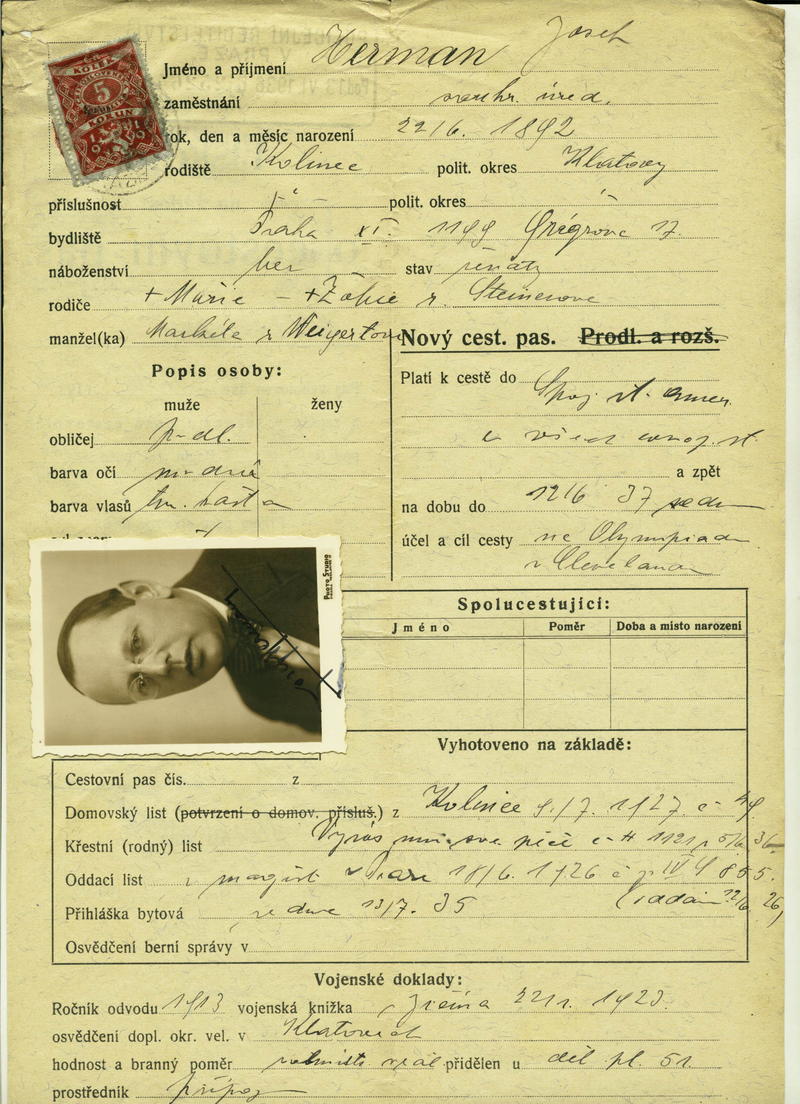 Herman Josef
Jméno a příjmení
KOLEK
5
KORUN
zaměstnání úřed.
rok, den a měsíc narození 22/6. 1892
rodiště Kolinec polit. okres Klatovy
příslušnost –〃– polit. okres 〃
bydliště Praha XI. 1199 Grégrova 17.
náboženství bez stav ženatý
rodiče + Marie – + Žofie r. Steinerove
manžel(ka) Markéta r Weigertova
Nový cest. pas. Prodl. a rozš.
Popis osoby:
Platí k cestě do Spoj. st. amer.
muže ženy
a všech evrop. st.
obličej p-dl.
barva očí modrá
a zpět
barva vlasů tm. kašta
na dobu do 12/6 37
účel a cíl cesty na Olympiadu
v Cleveland
PHOTO STUDIO
Spolucestující:
Jméno Poměr Doba a místo narození
Vyhotoveno na základě:
Cestovní pas čís. z
Domovský list (potvrzení o domov. přísluš.) z Kolince 9./7. 1927 č 49
Křestní (rodný) list č 1121 z 5/6 36
Oddací list v magistr v Praze 18/6. 1926 č p IV 4855.
Přihláška bytová ze dne 13/7. 35 (oddán 22/6 26)
Osvědčení berní správy v
Vojenské doklady:
Ročník odvodu 1913 vojenská knížka 1923.
osvědčení dopl. okr. vel. v Klatovech
hodnost a branný poměr přidělen u děl. pl. 51.
prostředník